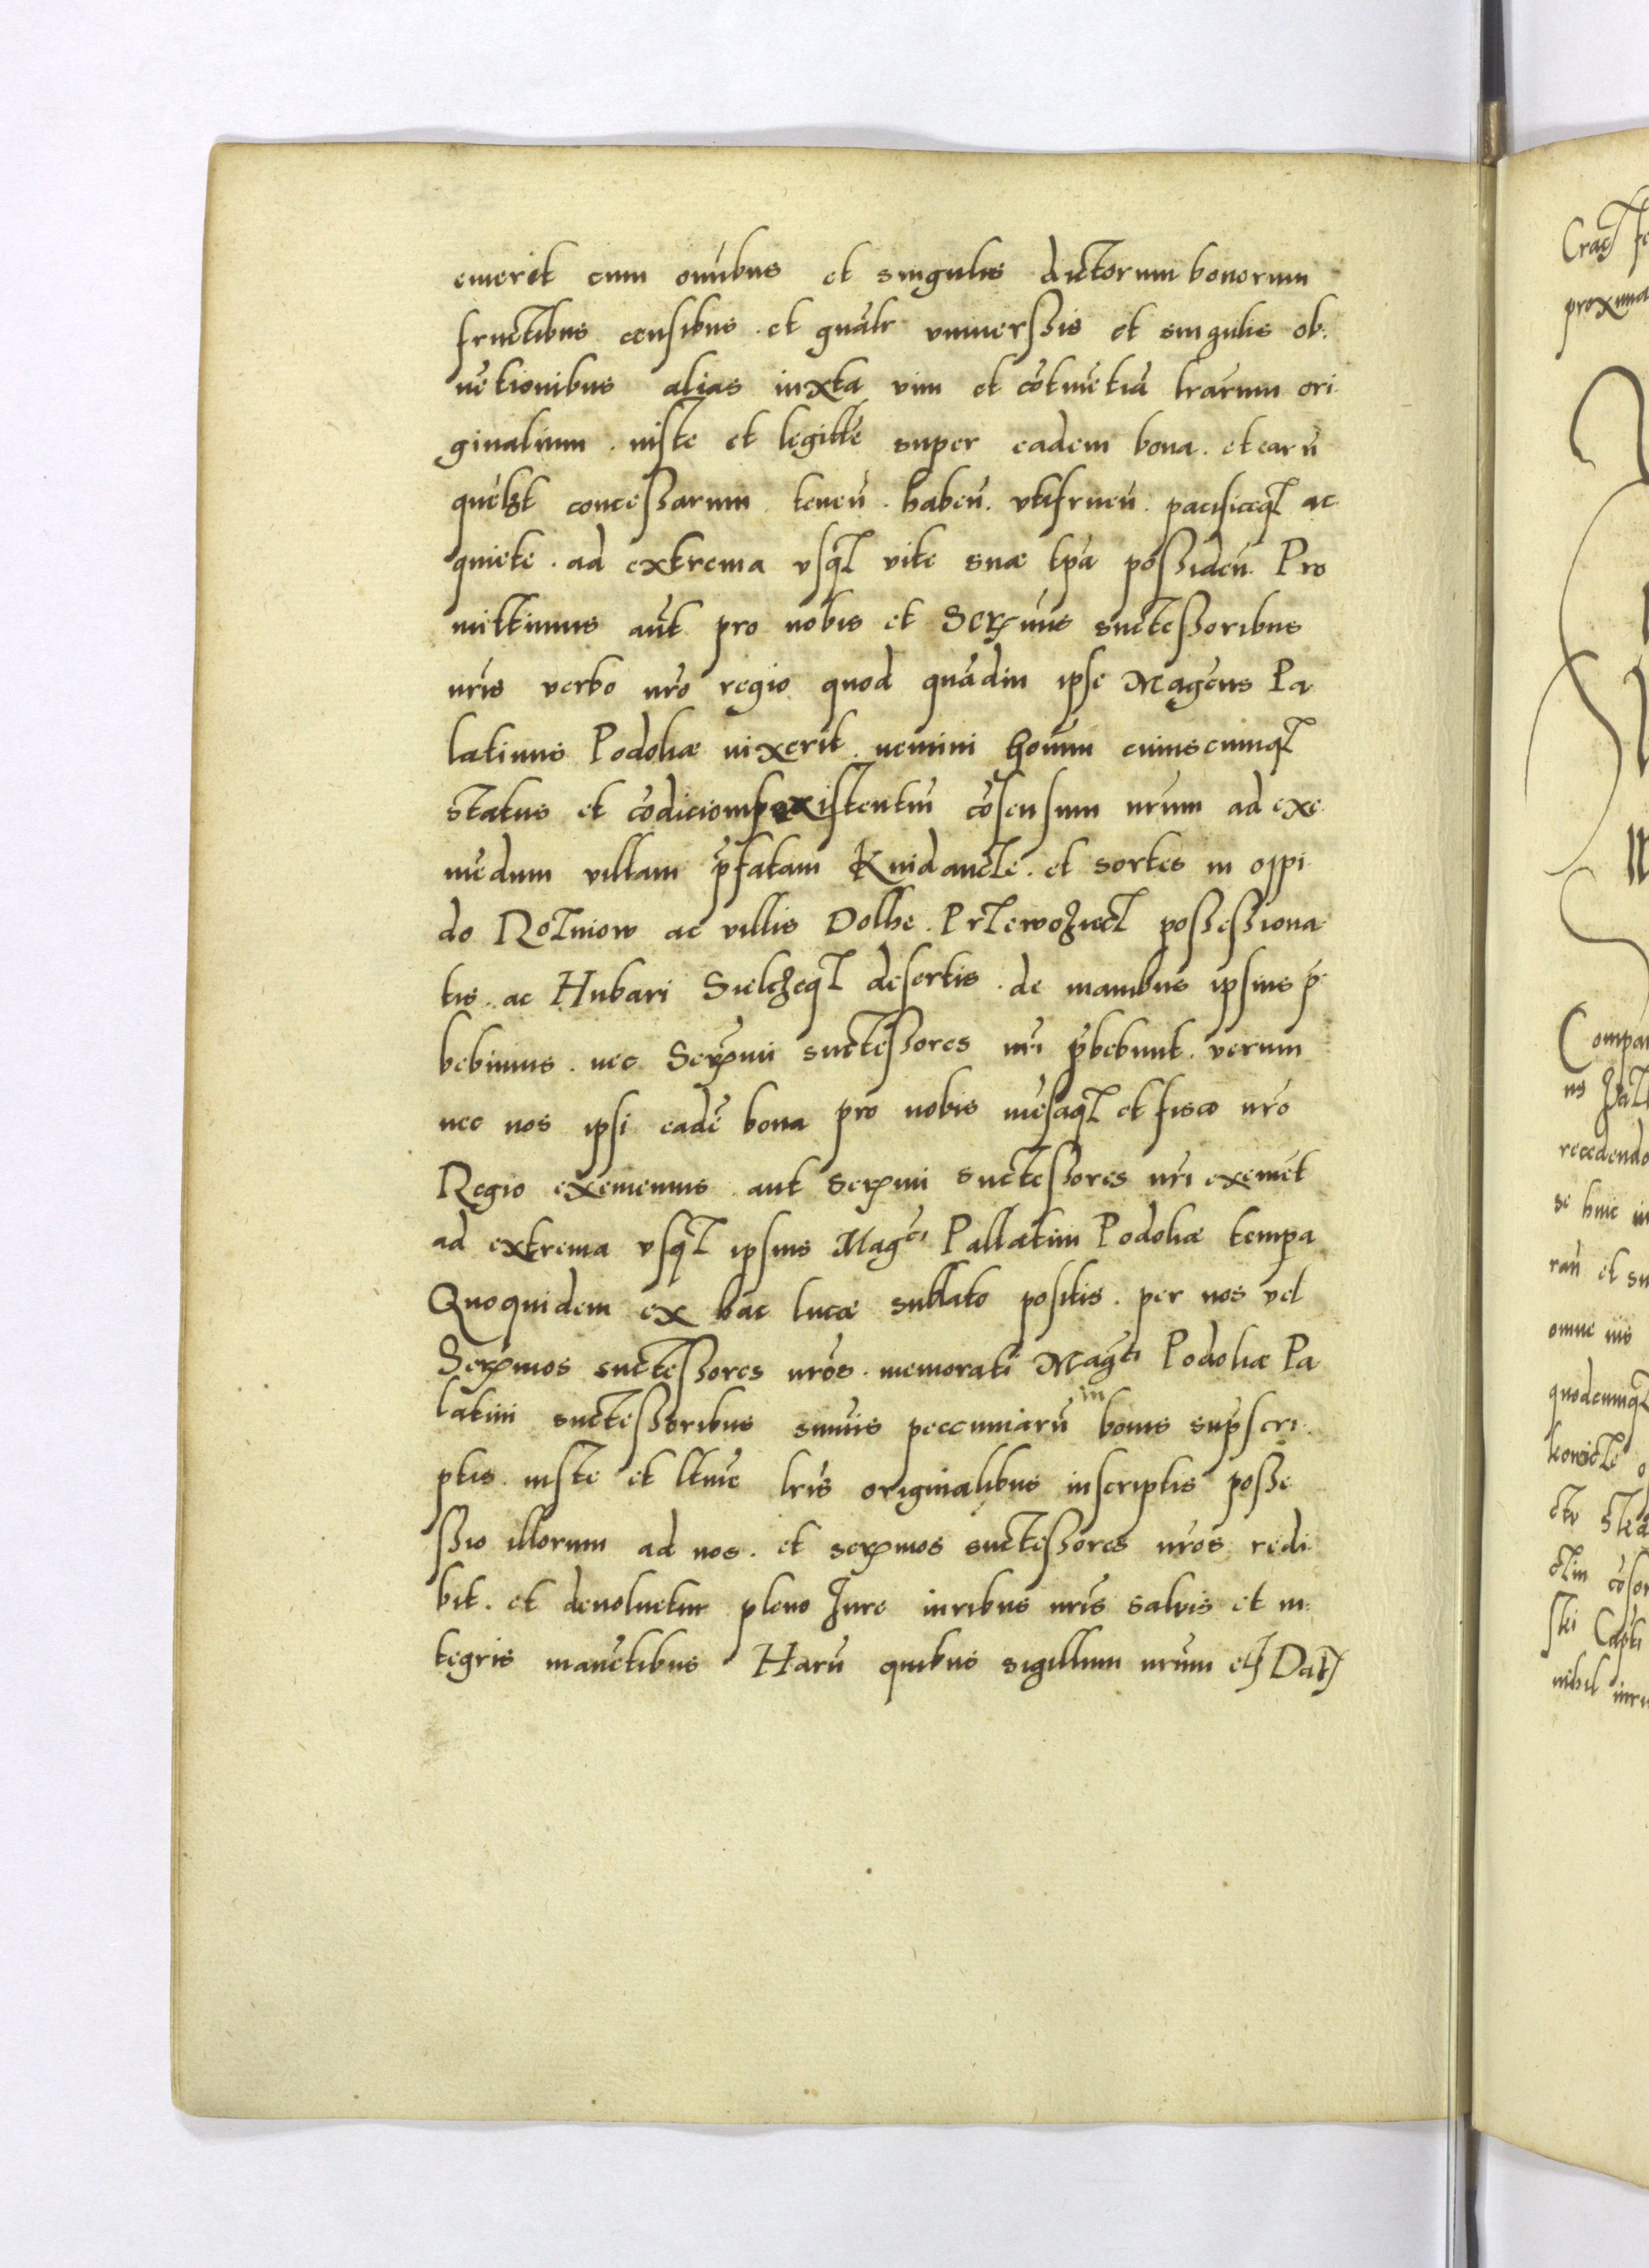 emerit cum omībus et singulis dictorum bonorum
fructibus censibus . et gnālr vniuerssis et singulis ob:
uētionibus alias iuxta vim et cōtinētiā lrārum ori
ginalium . iuste et legitte super eadem bona . et earū
quelibet concessarum teneñ . habeñ . vtifrueñ . pacificeq ac
quiete . ad extrema vsq vite suæ tpa possideñ . Pro
mittimus aūt pro nobis et Serenīmis successoribus
nrīs verbo nrō regio quod quādiu ipse Magcūs Pa
latinus Podoliæ vixerit . nemini hoīum cuiuscumq
status et cōdicionis existentiū cōsensum nrūm ad exe
mēdum villam p̄fatam Knidancze . et sortes in oppi
do Rozniow ac villis Dolhe . Przewoziecz possessiona
tis . ac Hubari Sielczeq desertis . de manibus ipsius p̄
bebimus . nec Serenīmi successores nrī p̄bebunt . verum
nec nos ipsi eadē bona pro nobis mēsaq et fisco nrō
Regio exememus . aut Serenmi successores nrī exemēt
ad extrema vsq ipsius Magci Pallatini Podoliæ tempa
Quoquidem ex hac lucæ sublato positis . per nos vel
Serenmos successores nrōs . memorati Magci Podoliæ Pa
latini successoribus sumīs peccuniarū in bonis supscri
ptis . iuste et lltime lrīs originalibus inscriptis posse
ssio illorum ad nos . et serenmos successores nrōs redi
bit . et deuoluetur pleno Jure iuribus nrīs salvis et in
tegris manētibus Harū quibus sigillum nrūm etc Datt
Crac
proxima
Compa
recedendo
se huic
rañ et su
omne ius
quodcumq
nihil